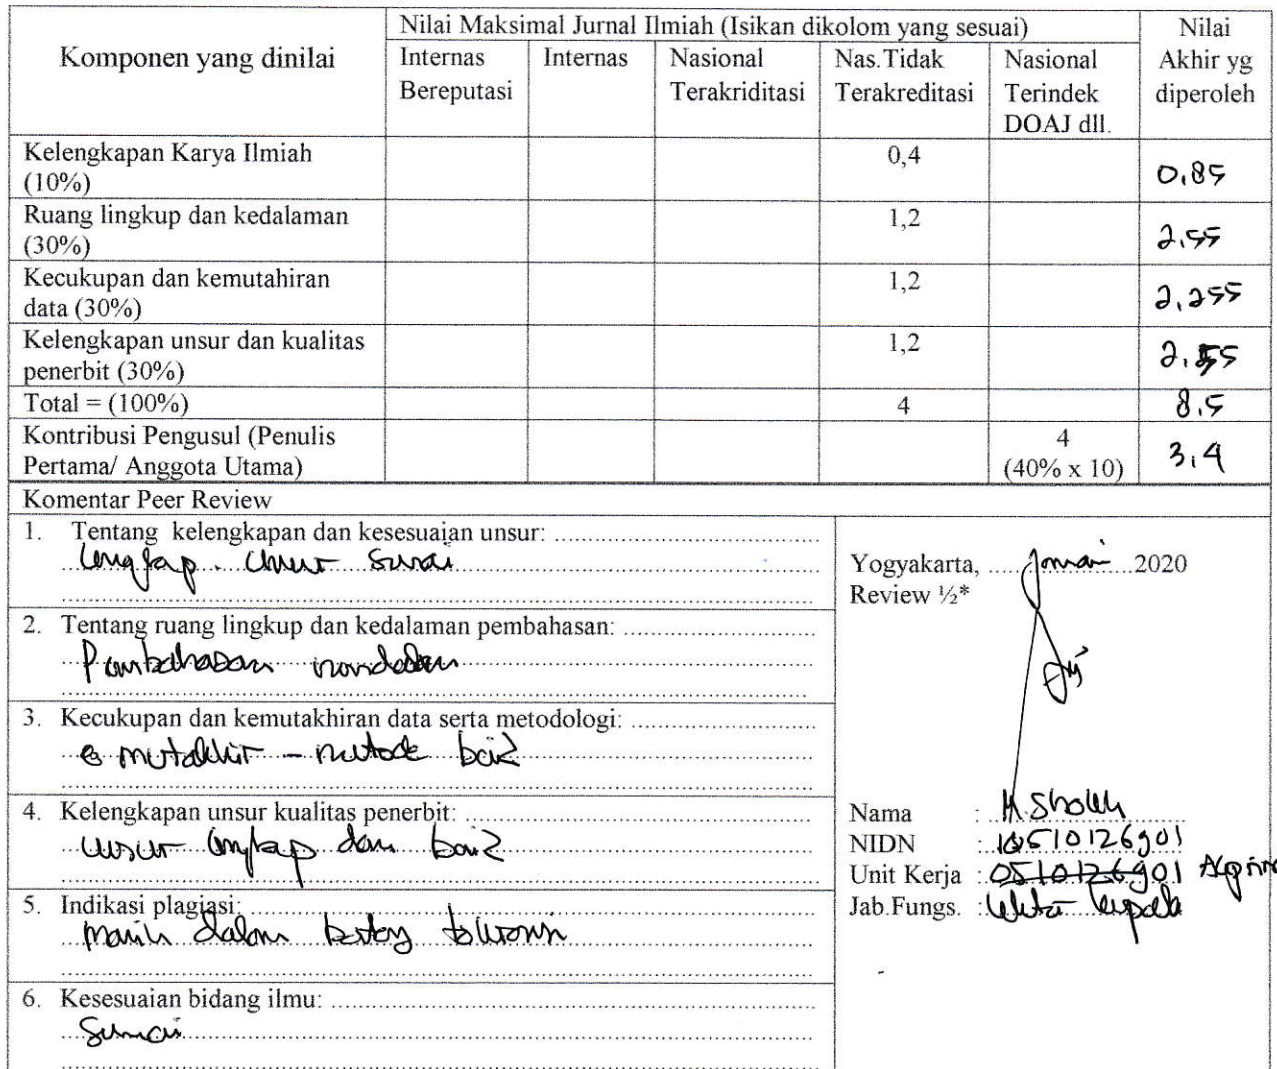 Komponen yang dinilai
Nilai Maksimal Jurnal Ilmiah (Isikan dikolom yang sesuai)
Nilai Akhir yg diperoleh
Internas Bereputasi
Internas
Nasional Terakriditasi
Nas.Tidak Terakreditasi
Nasional Terindek DOAJ dll.
Kelengkapan Karya Ilmiah
(10%)
0,4
0,85
Ruang lingkup dan kedalaman
(30%)
1,2
2,55
Kecukupan dan kemutahiran
data (30%)
1,2
2,255
Kelengkapan unsur dan kualitas
penerbit (30%)
1,2
2,55
Total = (100%)
4
8,5
Kontribusi Pengusul (Penulis
Pertama/ Anggota Utama)
4
(40% x 10)
3,4
Komentar Peer Review
1. Tentang kelengkapan dan kesesuaian unsur:
lengkap. Unsur Sesuai
2. Tentang ruang lingkup dan kedalaman pembahasan:
Pembahasan mendalam
3. Kecukupan dan kemutakhiran data serta metodologi:
mutakhir - metode baik
4. Kelengkapan unsur kualitas penerbit:
unsur lengkap dan baik
5. Indikasi plagiasi:
masih dalam batas toleransi
6. Kesesuaian bidang ilmu:
Sesuai
Yogyakarta, Januari 2020
Review ½*
Nama : M Sholeh
NIDN : 0510126901
Unit Kerja : 0510126901
Jab.Fungs. : Lektor Kepala